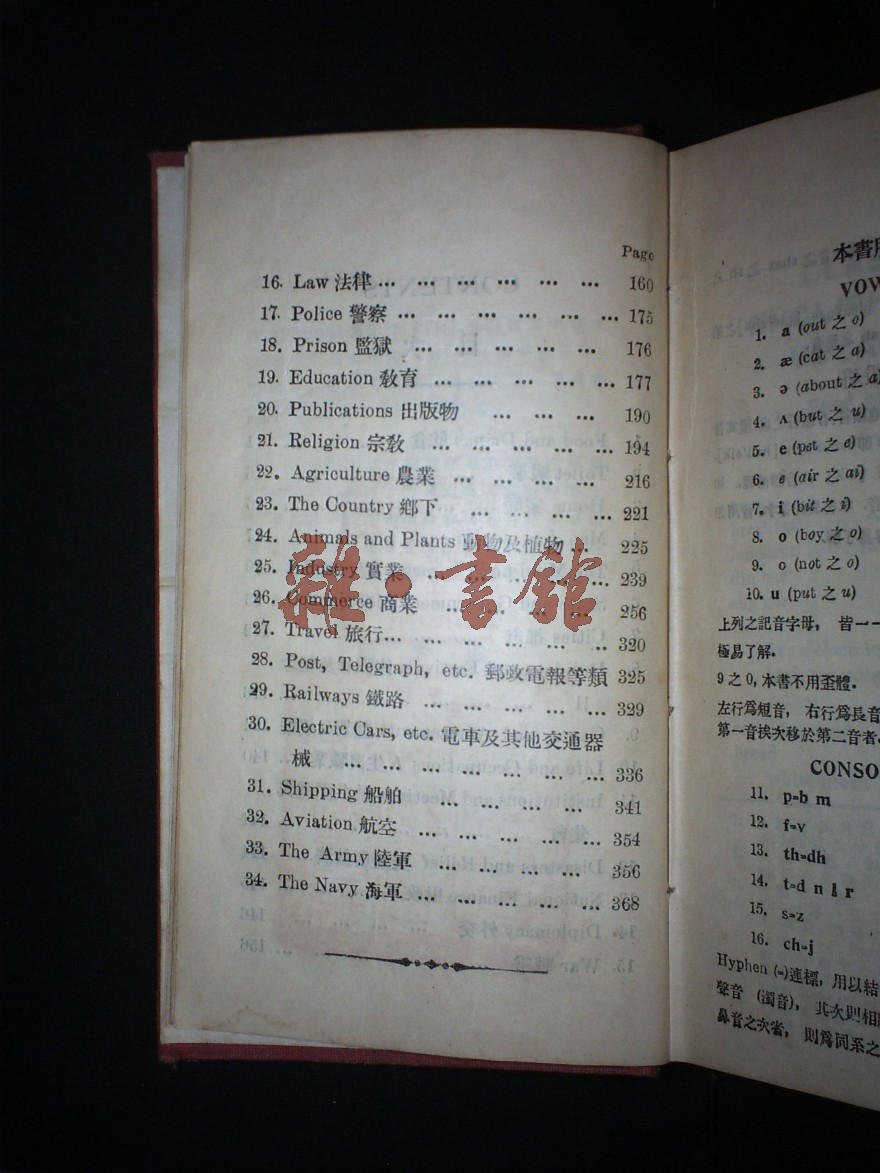 Page
16. Law 法律 ... ... ... ... ... ... 160
17. Police 警察 ... ... ... ... ... ... 175
18. Prison 監獄 ... ... ... ... ... 176
19. Education 敎育 ... ... ... ... ... 177
20. Publications 出版物 ... ... ... 190
21. Religion 宗敎 ... ... ... ... ... 194
22. Agriculture 農業 ... ... ... ... 216
23. The Country 鄕下 ... ... ... ... 221
24. Animals and Plants 動物及植物 ... 225
25. Industry 實業 ... ... ... ... ... 239
26. Commerce 商業 ... ... ... ... 256
27. Travel 旅行... ... ... ... ... ... 320
28. Post, Telegraph, etc. 郵政電報等類 325
29. Railways 鐵路 ... ... ... ... ... 329
30. Electric Cars, etc. 電車及其他交通器
械 ... ... ... ... ... ... ... 336
31. Shipping 船舶 ... ... ... ... 341
32. Aviation 航空 ... ... ... ... ... 354
33. The Army 陸軍 ... ... ... ... 356
34. The Navy 海軍 ... ... ... ... ... 368
雜·書館
本書
VOW
1. a (out 之 o)
2. æ (cat 之 a)
3. ə (about 之 a)
4. ʌ (but 之 u)
5. e (pet 之 e)
6. e (air 之 ai)
7. i (bit 之 i)
8. o (boy 之 o)
9. o (not 之 o)
10. u (put 之 u)
上列之記音字母， 皆一一
極易了解．
9 之 0，本書不用歪體．
左行爲短音， 右行爲長音
第一音挨次移於第二音者．
CONSO
11. p=b m
12. f=v
13. th=dh
14. t=d n l r
15. s=z
16. ch=j
Hyphen (=)連標，用以結
聲音 (濁音)， 其次則相
鼻音之次當， 則爲同系之